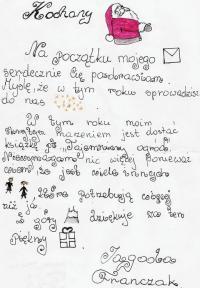 Kochany
Na początku mojego
serdecznie Cię pozdrawiam.
Myślę, że w tym roku sprowadzisz
do nas
W tym roku moim
marzeniem jest dostać
książkę pt. "Tajemniczy ogród".
nic więcej ponieważ
że jest wiele innych
które potrzebują czegoś
niż ja.
Z góry dziękuję za ten
piękny
Jagoda
Franczak